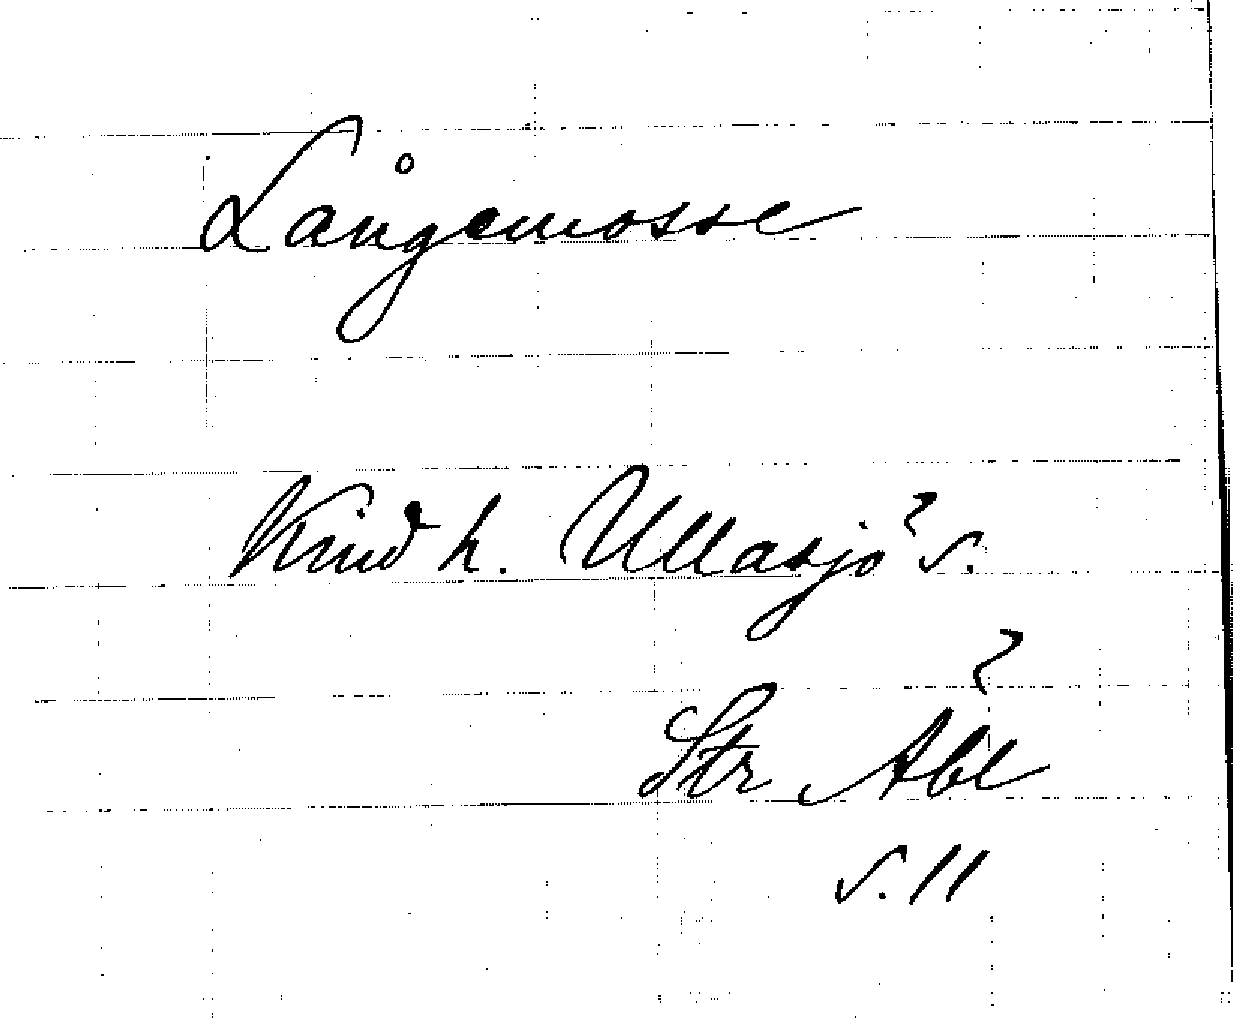 Långemosse
Kind h. Ullasjö s.
Str Abl
s. 11